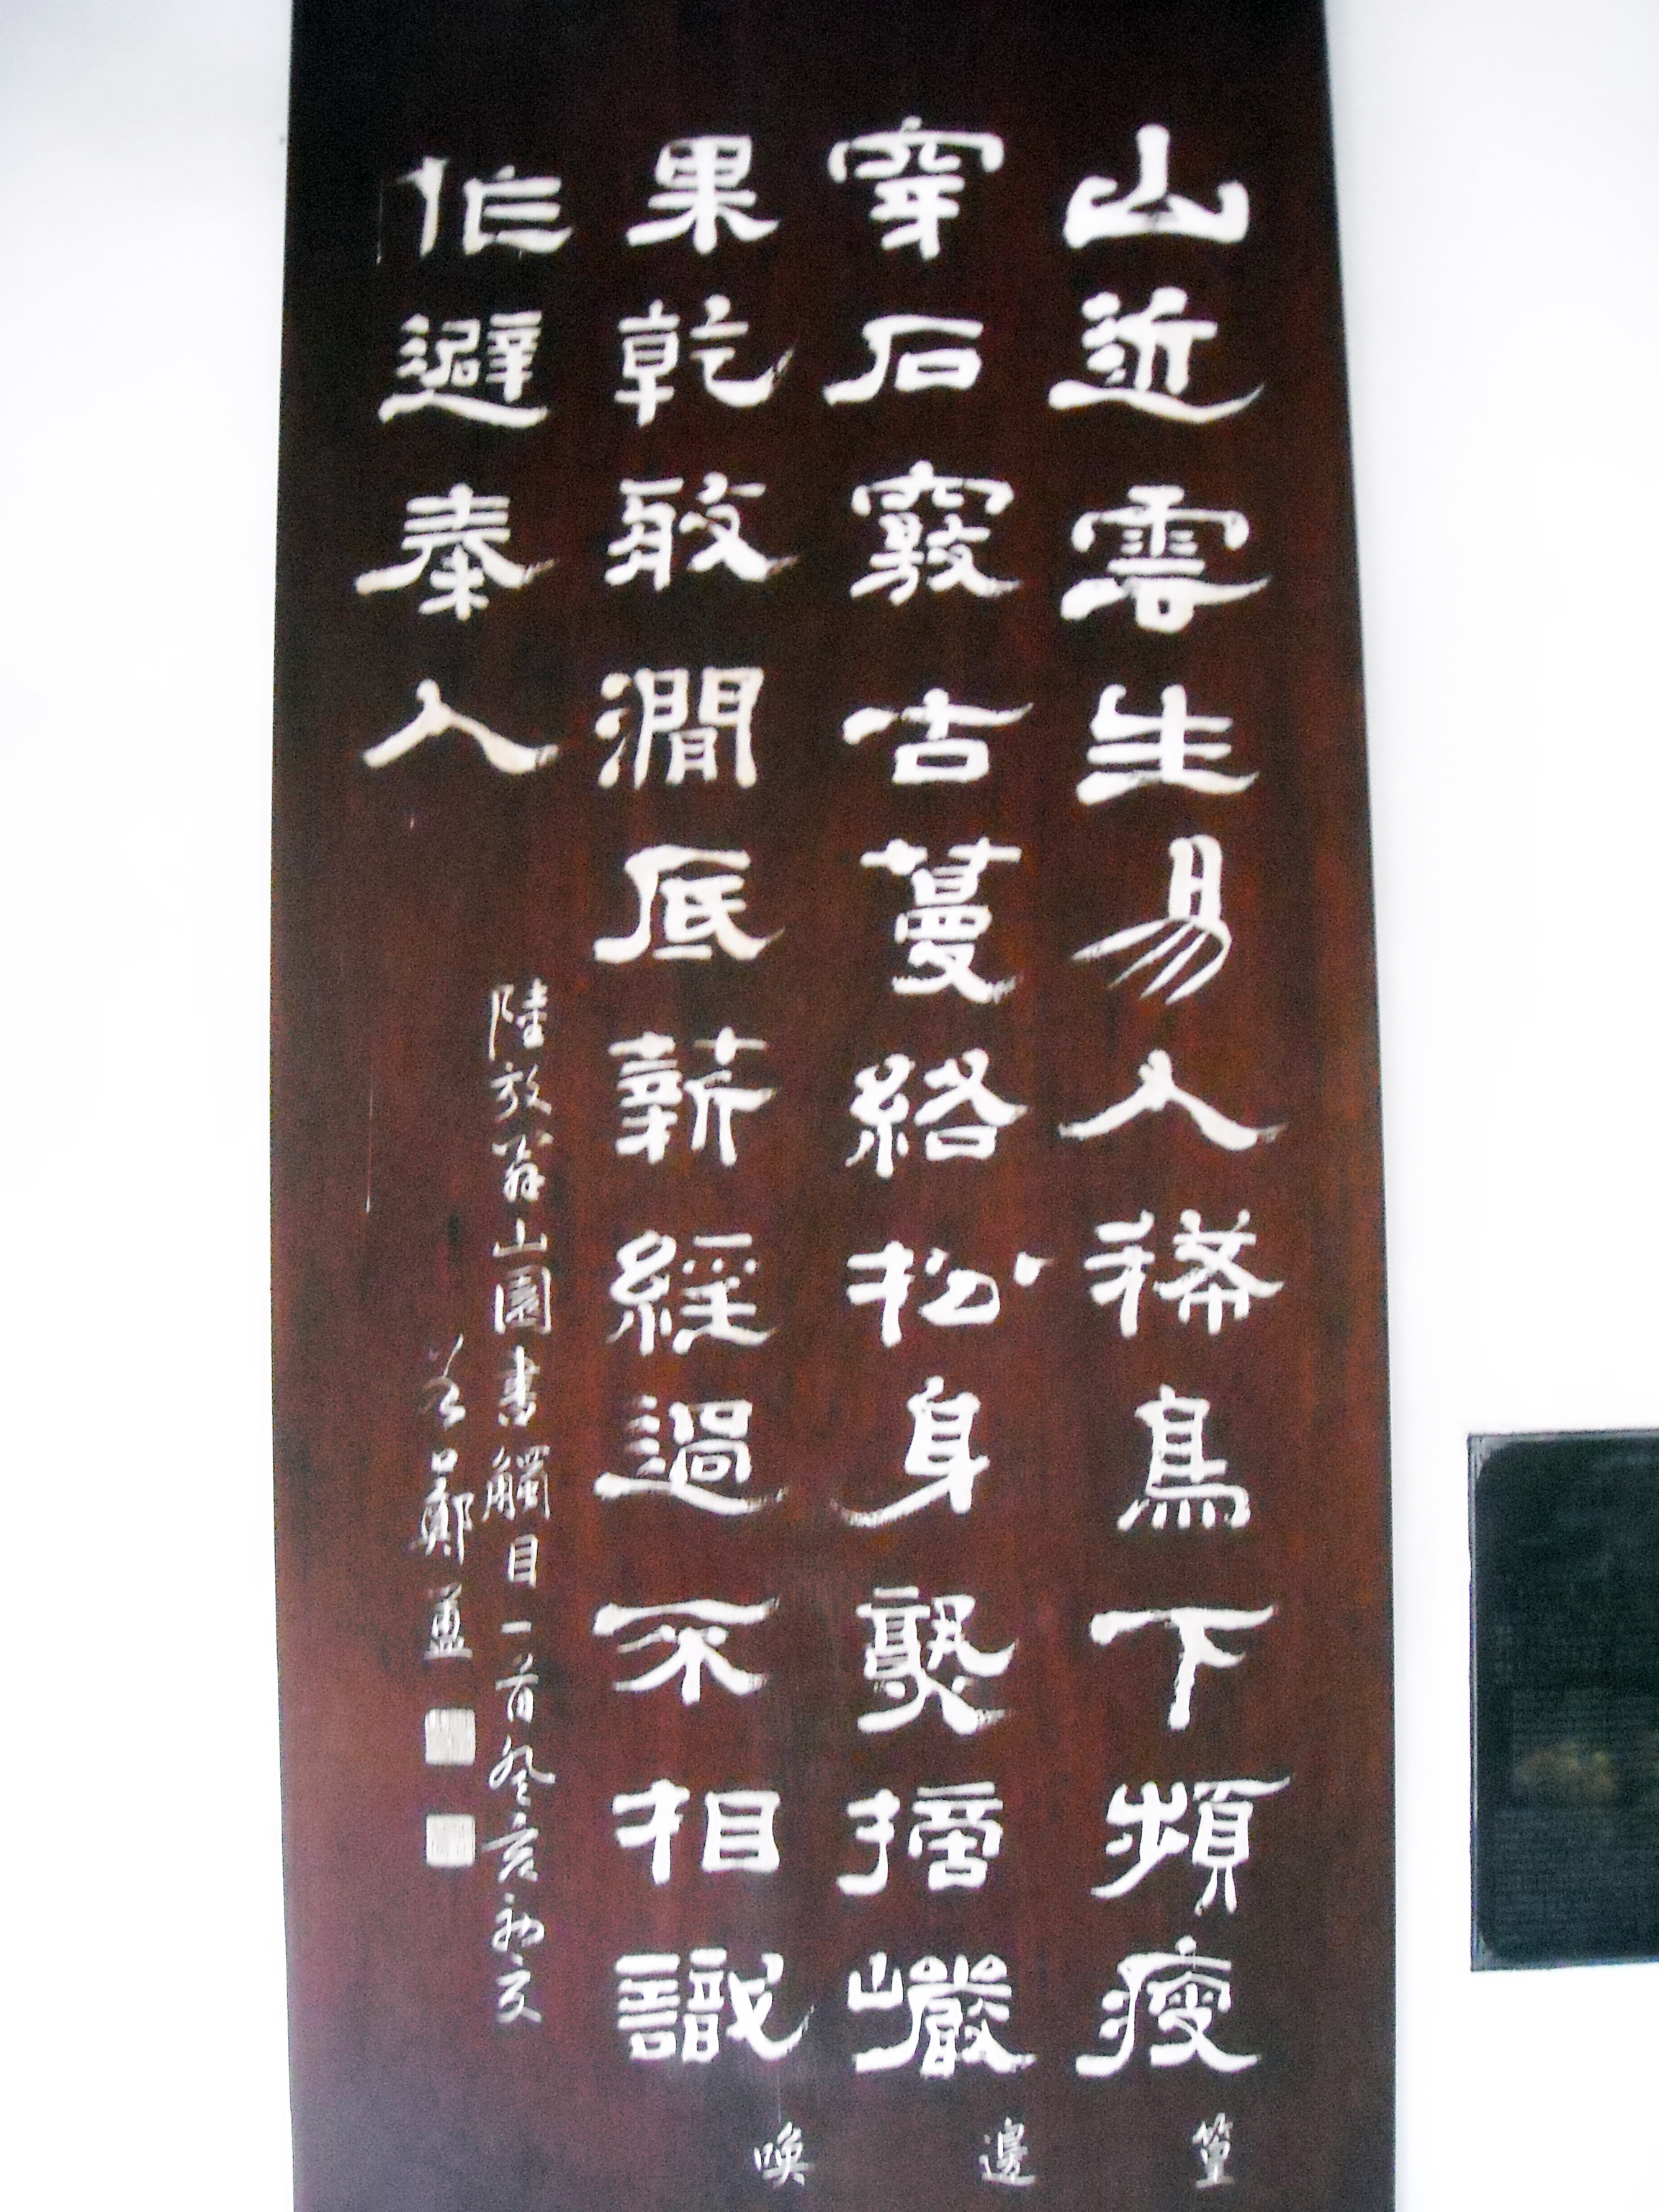 山近雲生易人稀鳥下頻瘦篁
穿石竅古蔓絡松身熟摘巖邊
果乾收澗底薪經過不相識喚
作避秦人
陸放翁山園書觸目一首癸亥初夏
鄭